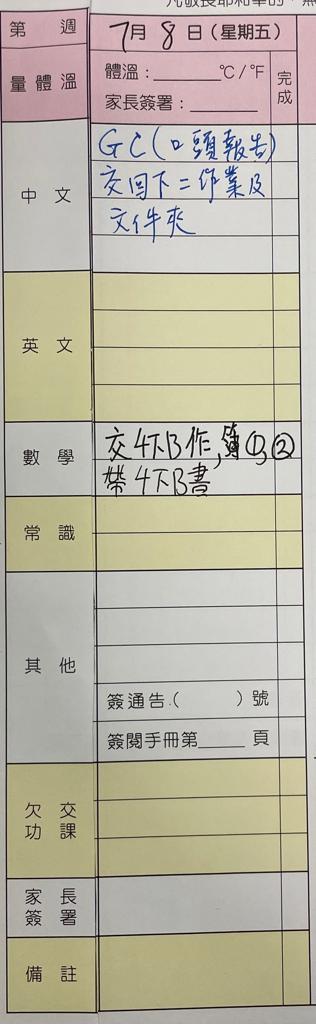 第 週
7月8日(星期五)
量體溫
體溫：________°C/°F
家長簽署：________
完成
中文
GC(口頭報告)
交回下二作業及
文件夾
英文
數學
交4下B作,簿①,②
帶4下B書
常識
其他
簽通告.( )號
簽閱手冊第_____頁
欠交
功課
家長
簽署
備註